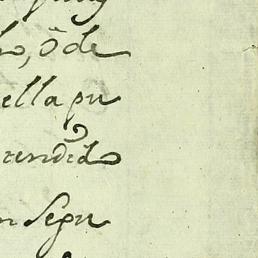 ho, ó de
ella pu
rendido
n Segu